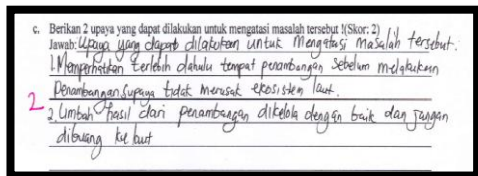 c. Berikan 2 upaya yang dapat dilakukan untuk mengatasi masalah tersebut !(Skor: 2)
Jawab: Upaya yang dapat dilakukan untuk mengatasi masalah tersebut:
1. Memperhatikan terlebih dahulu tempat penambangan sebelum melakukan
Penambangan supaya tidak merusak ekosistem laut.
2
2. Limbah hasil dari penambangan dikelola dengan baik dan jangan
dibuang ke laut